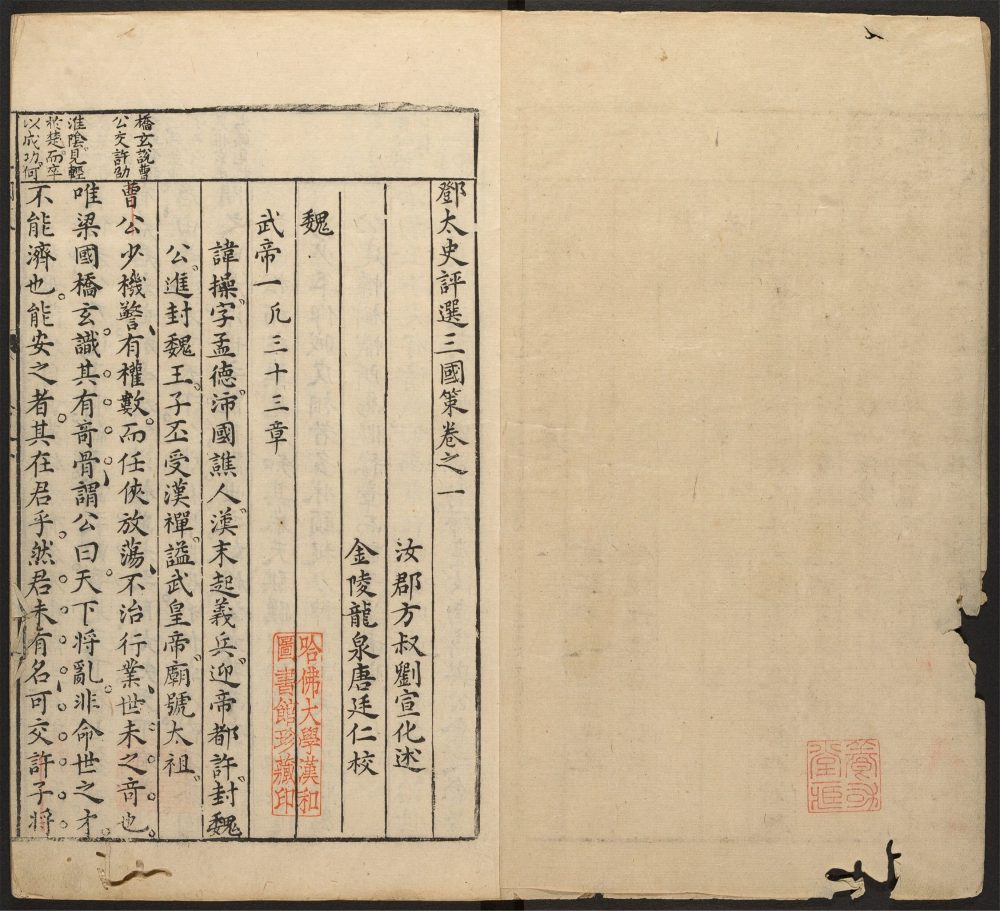 鄧太史評選三國策卷之一
汝郡方叔劉宣化述
金陵龍泉唐廷仁校
魏
武帝一凡三十三章
諱操字孟德沛國譙人漢末起義兵迎帝都許封魏
公進封魏王子丕受漢禪諡武皇帝廟號太祖
曹公少機警有權數而任俠放蕩不治行業世未之竒也
唯梁國橋玄識其有竒骨謂公曰天下將亂非命世之才
不能濟也能安之者其在君乎然君未有名可交許子將
橋玄說曹
公交許劭
淮陰見輕
於楚而卒
以成功何
哈佛大學漢和
圖書館珍藏印